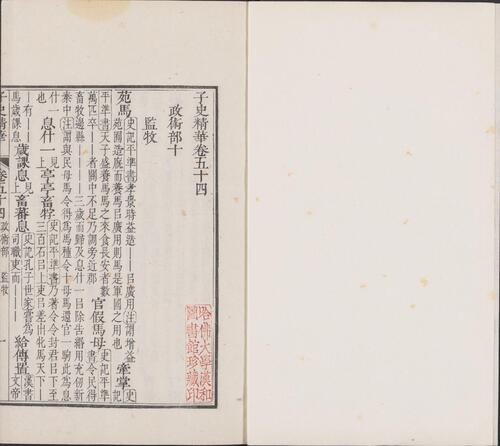 子史精華卷五十四
政術部十
監牧
苑馬史記平準書孝景時益造――㠯廣用注謂增益苑囿造廄而養馬㠯廣用則馬是軍國之用也牽掌史記
平準書天子盛養馬馬之來食長安者數萬匹卒――者關中不足乃調旁近郡官假馬母史記平準書令民得
畜牧邊縣――――三歲而歸及息什一㠯除告緡用充仞新秦中注謂與民母馬令得為馬種令十母馬還官一駒此為息
什一也息什一見上亭亭畜牸史記平準書乃著令令封君㠯下至三百石㠯上吏㠯差出牝馬天下――
―有――馬歲課息歲課息見上畜蕃息史記孔子世家嘗為司職吏而――――給傳置漢書文帝
子史精華
卷五十四 政術部 監牧 一
哈佛大學漢和圖書館珍藏印